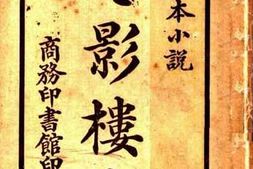 本小説
影樓
商務印書館印